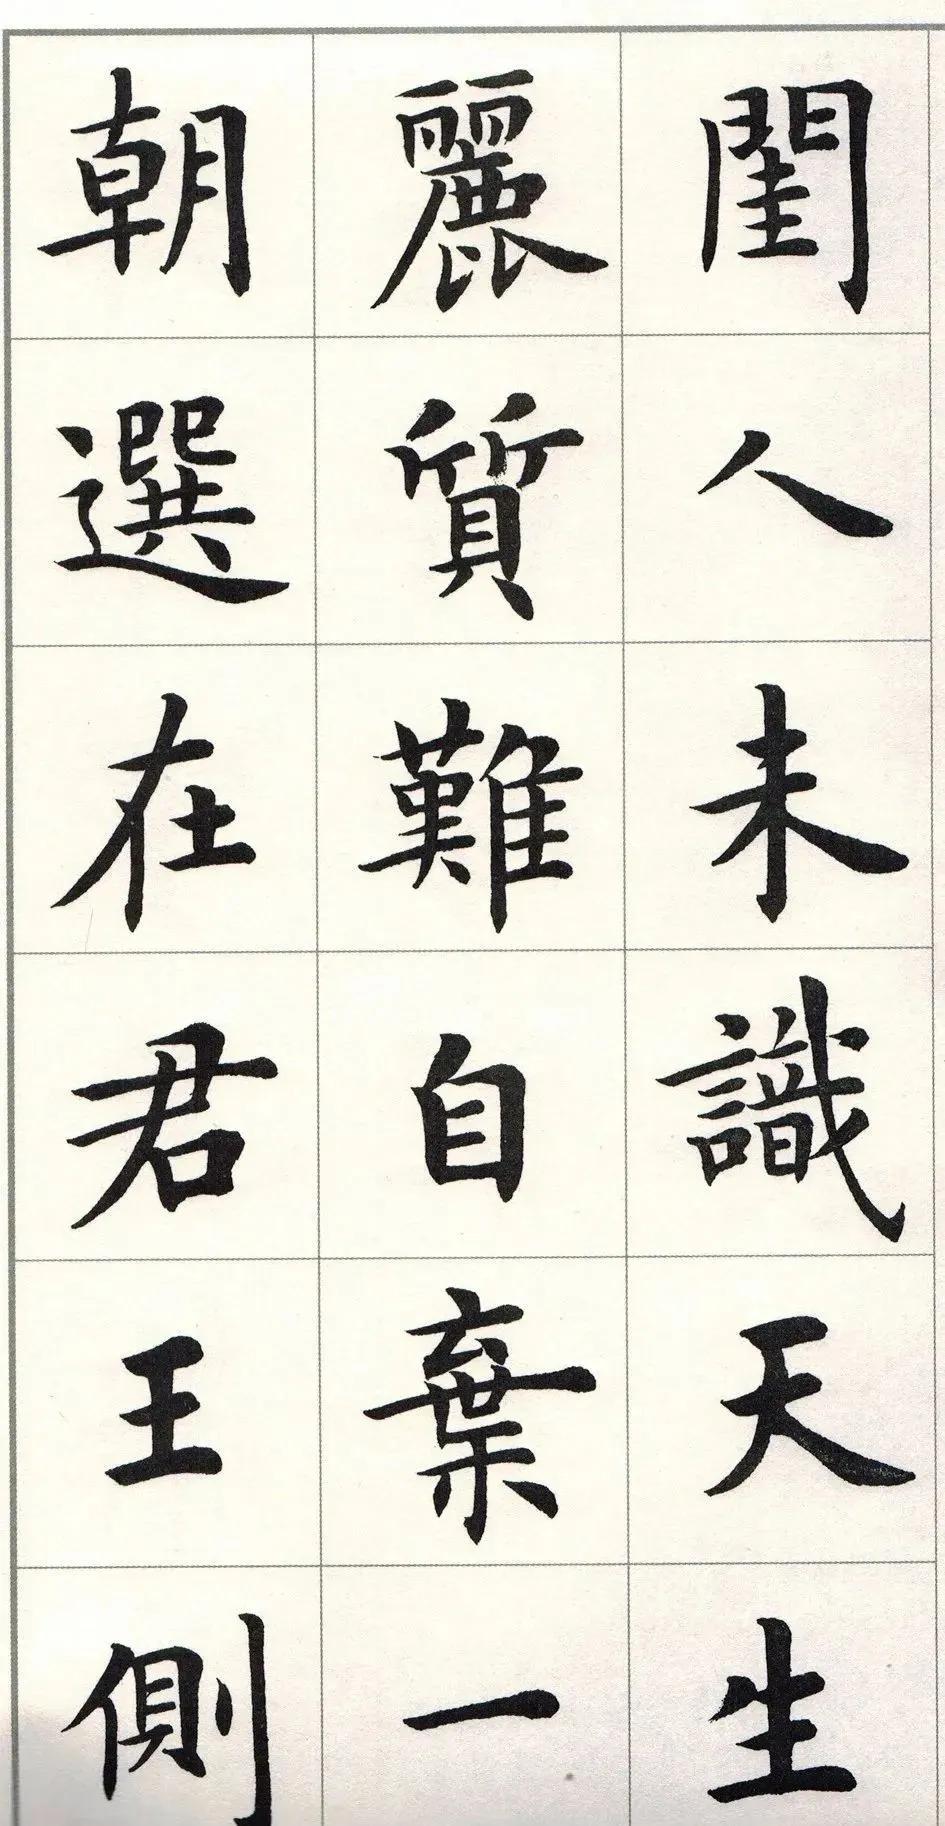 閨人未識天生
麗質難自棄一
朝選在君王側